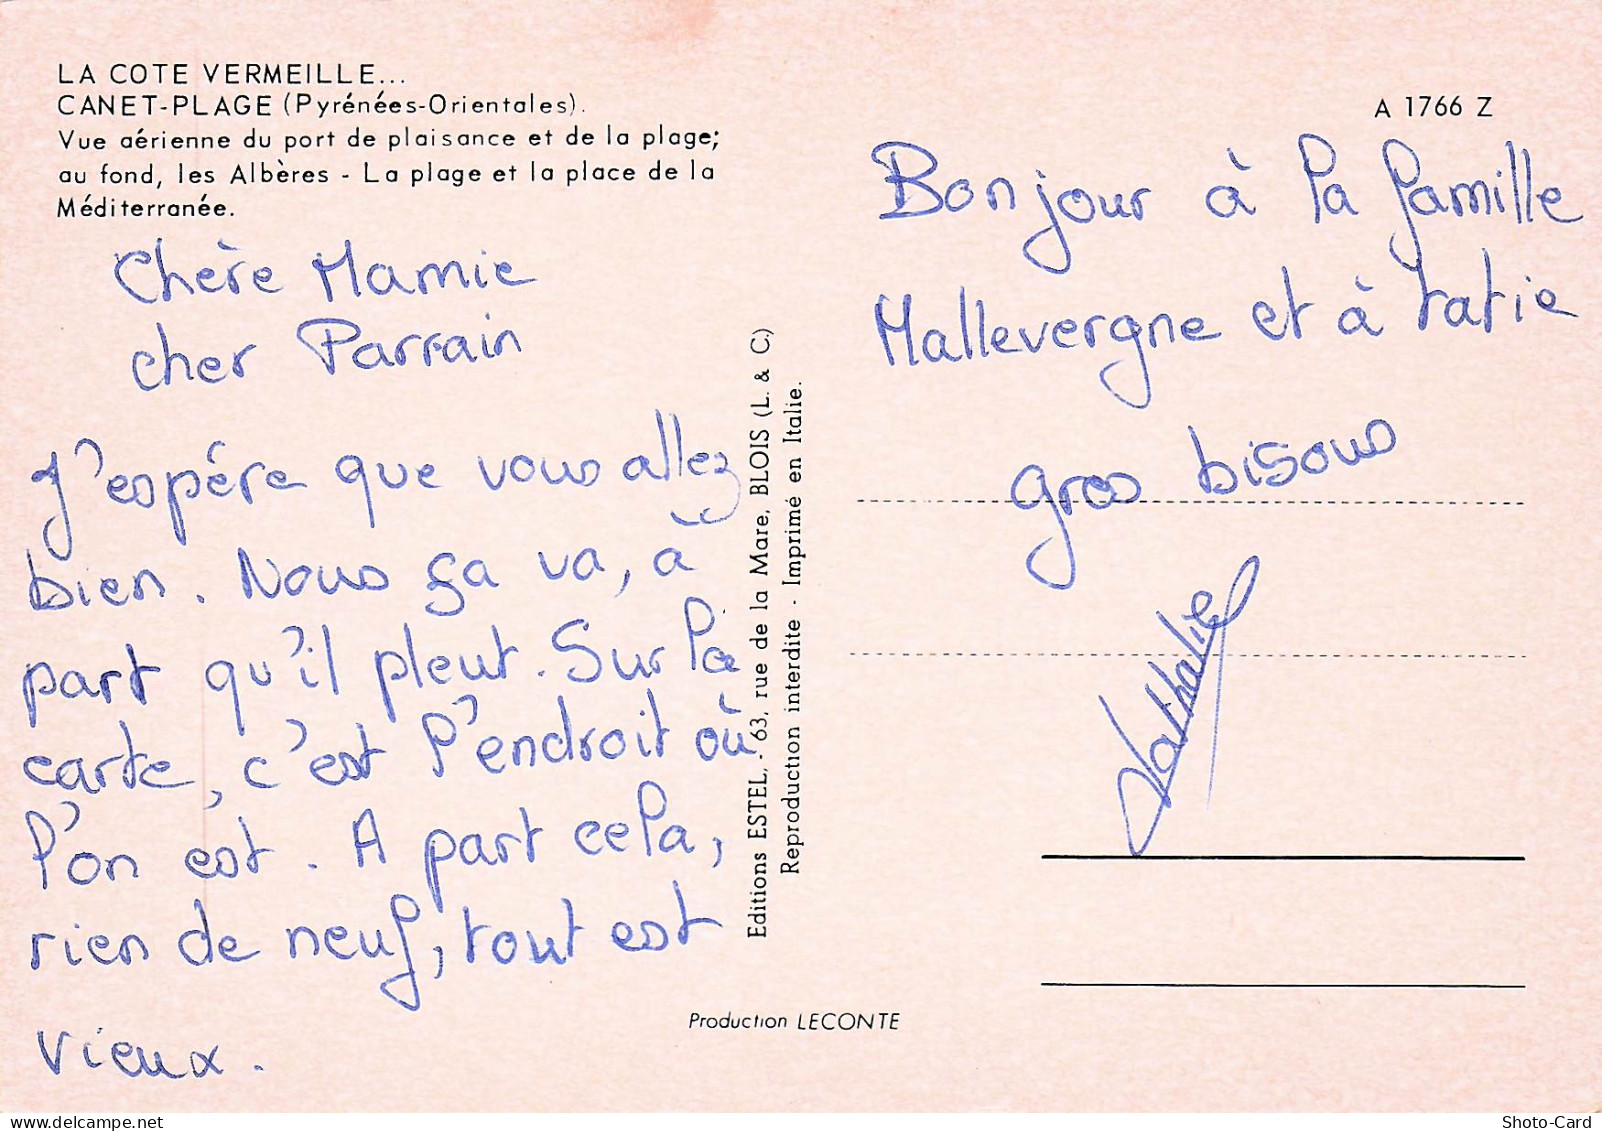 LA COTE VERMEILLE...
CANET-PLAGE (Pyrénées-Orientales).
Vue aérienne du port de plaisance et de la plage;
au fond, les Albères - La plage et la place de la
Méditerranée.
Chère Mamie
cher Parrain
J'espére que vous allez
bien. Nous ça va, à
part qu'il pleut. Sur la
carte, c'est l'endroit où
l'on est. A part cela,
rien de neuf, tout est
vieux.
Editions ESTEL, - 63, rue de la Mare, BLOIS (L. & C.)
Reproduction interdite - Imprimé en Italie.
Production LECONTE
A 1766 Z
Bonjour à la famille
Mallevergne et à tatie
gros bisous
Nathalie
Shoto-Card